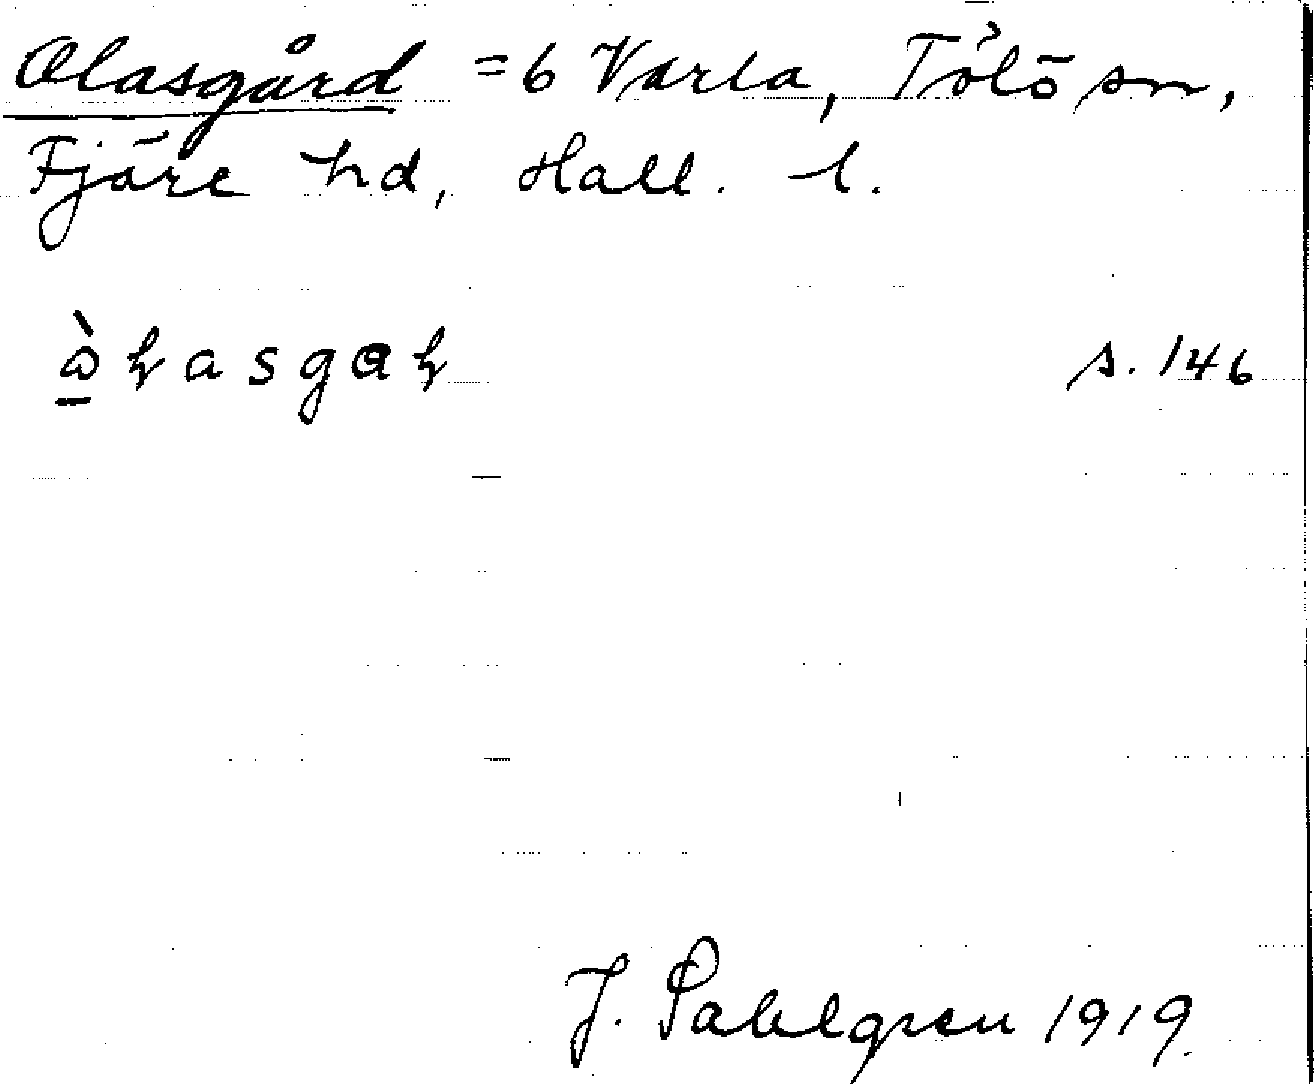 Olasgård = 6 Varla, Tölö sn,
Fjäre hd, Hall. l.
s. 146
J. Sahlgren 1919